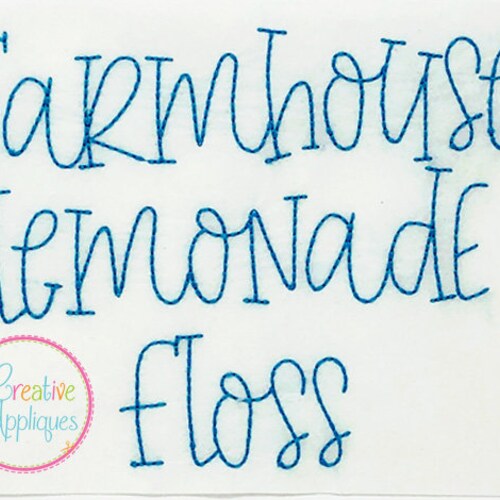 Farmhouse
Lemonade
floss
Creative
Appliques